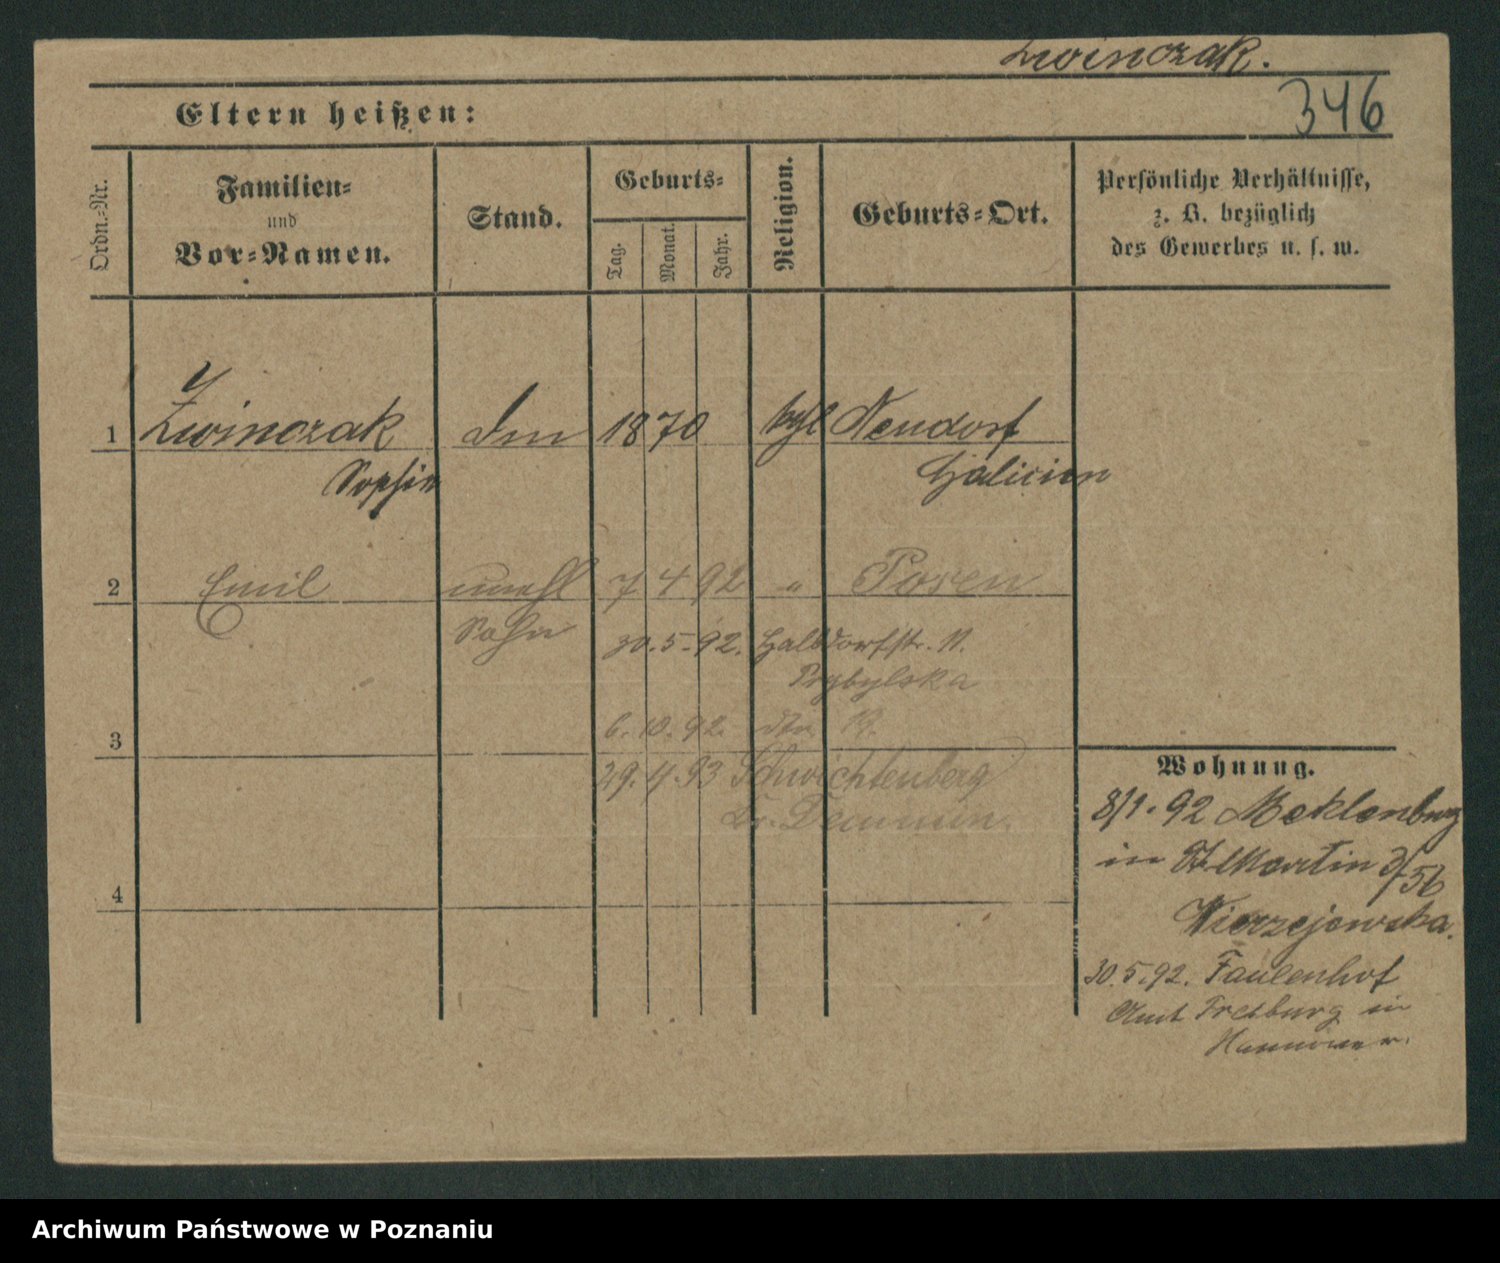 Zwinczak.
346
Eltern heißen:
Ordn.-Nr.
Familien-
und
Vor-Namen.
Stand.
Geburts-
Tag.
Monat.
Jahr.
Religion.
Geburts-Ort.
Persönliche Verhältnisse,
z. B. bezüglich
des Gewerbes u. s. w.
1 Zwinczak 1870 Neudorf
Sophie Galicien
2 Emil unehl 7 4 92 " Posen
Sohn 30.5.92. Halbdorfstr. 11.
Przybylska
3 6.10.92.
29.4.93 Schwichtenberg
Kr. Demmin.
4
Wohnung.
8/1.92 Meklenburg
in St Martin 3/56
Wierzejewska.
30.5.92. Faulenhof
Amt Freiburg in
Hannover.
Archiwum Państwowe w Poznaniu